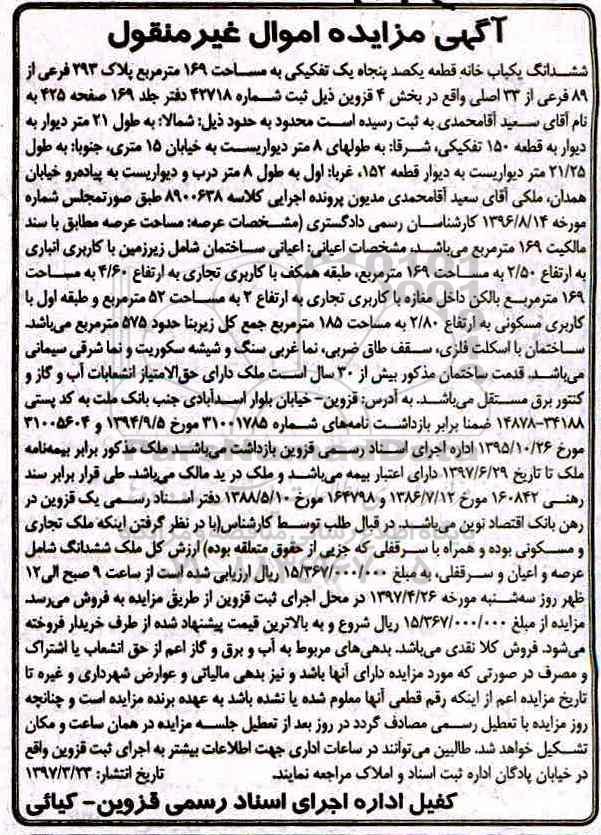 آگهی مزایده اموال غیرمنقول
ششدانگ یکباب خانه قطعه یکصد پنجاه یک تفکیکی به مساحت ۱۶۹ مترمربع پلاک ۲۹۳ فرعی از
۸۹ فرعی از ۳۳ اصلی واقع در بخش ۴ قزوین ذیل ثبت شماره ۴۲۷۱۸ دفتر جلد ۱۶۹ صفحه ۴۲۵ به
نام آقای سعید آقامحمدی به ثبت رسیده است محدود به حدود ذیل: شمالا: به طول ۲۱ متر دیوار به
دیوار به قطعه ۱۵۰ تفکیکی، شرقا: به طولهای ۸ متر دیواریست به خیابان ۱۵ متری، جنوبا: به طول
۲۱/۲۵ متر دیواریست به دیوار قطعه ۱۵۲، غربا: اول به طول ۸ متر درب و دیواریست به پیاده‌رو خیابان
همدان، ملکی آقای سعید آقامحمدی مدیون پرونده اجرایی کلاسه ۸۹۰۰۶۳۸ طبق صورتمجلس شماره
مورخه ۱۳۹۶/۸/۱۴ کارشناسان رسمی دادگستری (مشخصات عرصه: مساحت عرصه مطابق با سند
مالکیت ۱۶۹ مترمربع می‌باشد، مشخصات اعیانی: اعیانی ساختمان شامل زیرزمین با کاربری انباری
به ارتفاع ۲/۵۰ به مساحت ۱۶۹ مترمربع، طبقه همکف با کاربری تجاری به ارتفاع ۴/۶۰ به مساحت
۱۶۹ مترمربع بالکن داخل مغازه با کاربری تجاری به ارتفاع ۲ به مساحت ۵۲ مترمربع و طبقه اول با
کاربری مسکونی به ارتفاع ۲/۸۰ به مساحت ۱۸۵ مترمربع جمع کل زیربنا حدود ۵۷۵ مترمربع می‌باشد.
ساختمان با اسکلت فلزی، سقف طاق ضربی، نما غربی سنگ و شیشه سکوریت و نما شرقی سیمانی
می‌باشد. قدمت ساختمان مذکور بیش از ۳۰ سال است ملک دارای حق‌الامتیاز انشعابات آب و گاز و
کنتور برق مستقل می‌باشد. به آدرس: قزوین- خیابان بلوار اسدآبادی جنب بانک ملت به کد پستی
۳۴۱۸۸-۱۴۸۷۸ ضمنا برابر بازداشت نامه‌های شماره ۳۱۰۰۱۷۸۵ مورخ ۱۳۹۴/۹/۵ و ۳۱۰۰۵۶۰۴
مورخ ۱۳۹۵/۱۰/۲۶ اداره اجرای اسناد رسمی قزوین بازداشت می‌باشد ملک مذکور برابر بیمه‌نامه
ملک تا تاریخ ۱۳۹۷/۶/۲۹ دارای اعتبار بیمه می‌باشد و ملک در ید مالک می‌باشد. طی قرار برابر سند
رهنی ۱۶۰۸۴۲ مورخ ۱۳۸۶/۷/۱۲ و ۱۶۴۷۹۸ مورخ ۱۳۸۸/۵/۱۰ دفتر اسناد رسمی یک قزوین در
رهن بانک اقتصاد نوین می‌باشد. در قبال طلب توسط کارشناس(با در نظر گرفتن اینکه ملک تجاری
و مسکونی بوده و همراه با سرقفلی که جزیی از حقوق متعلقه بوده) ارزش کل ملک ششدانگ شامل
عرصه و اعیان و سرقفلی، به مبلغ ۱۵/۳۶۷/۰۰۰/۰۰۰ ریال ارزیابی شده است از ساعت ۹ صبح الی۱۲
ظهر روز سه‌شنبه مورخه ۱۳۹۷/۴/۲۶ در محل اجرای ثبت قزوین از طریق مزایده به فروش می‌رسد.
مزایده از مبلغ ۱۵/۳۶۷/۰۰۰/۰۰۰ ریال شروع و به بالاترین قیمت پیشنهاد شده از طرف خریدار فروخته
می‌شود. فروش کلا نقدی می‌باشد. بدهی‌های مربوط به آب و برق و گاز اعم از حق انشعاب یا اشتراک
و مصرف در صورتی که مورد مزایده دارای آنها باشد و نیز بدهی مالیاتی و عوارض شهرداری و غیره تا
تاریخ مزایده اعم از اینکه رقم قطعی آنها معلوم شده یا نشده باشد به عهده برنده مزایده است و چنانچه
روز مزایده با تعطیل رسمی مصادف گردد در روز بعد از تعطیل جلسه مزایده در همان ساعت و مکان
تشکیل خواهد شد. طالبین می‌توانند در ساعات اداری جهت اطلاعات بیشتر به اجرای ثبت قزوین واقع
در خیابان پادگان اداره ثبت اسناد و املاک مراجعه نمایند. تاریخ انتشار: ۱۳۹۷/۳/۲۳
کفیل اداره اجرای اسناد رسمی قزوین- کیائی